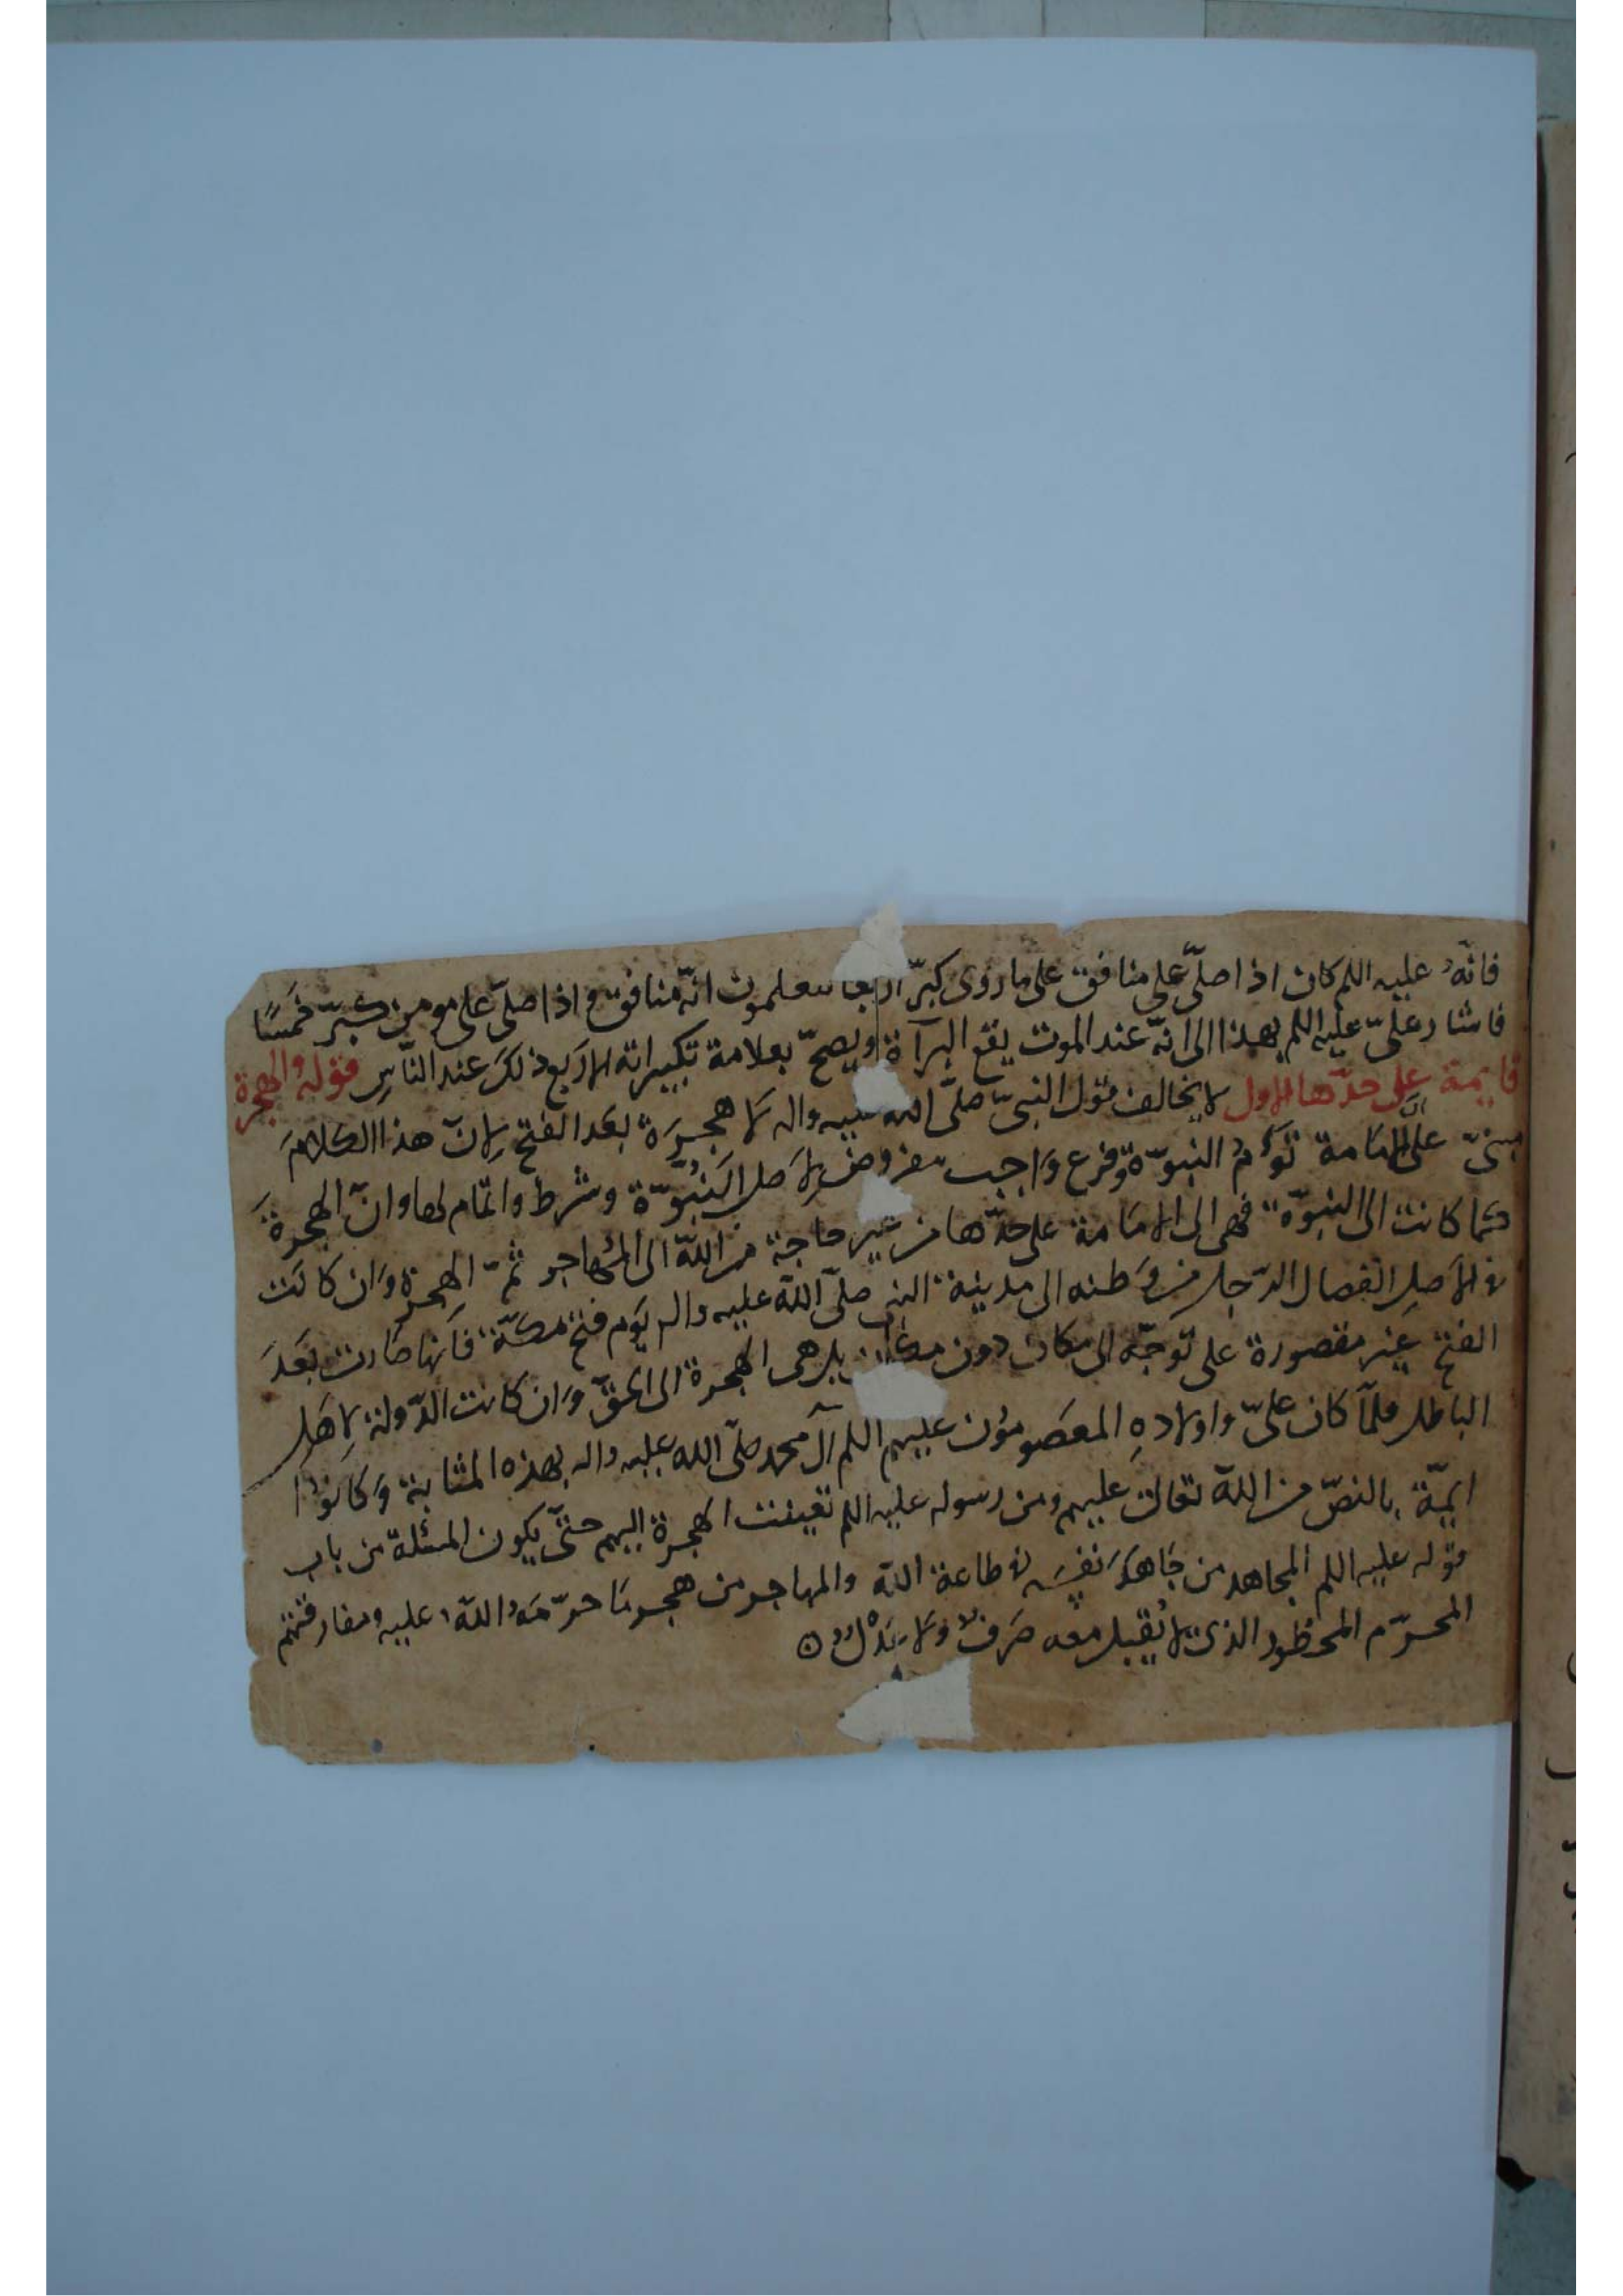 فانّه عليه اللم كان اذا صلّى على منافق على ما روى كبّر اربعا معلمون انّه منافق و اذا صلّى على مومن كبّر خمسًا
فاشار علىّ عليه اللم بهذا الى انّه عند الموت يقع البرآة ويصحّ بعلامة تكبيراته الاربع ذلك عند النّاس قوله والهجرة
قايمة على حدّها الاول لا يخالف قول النبىّ صلّى الله عليه واله لا هجرة بعد الفتح لانّ هذا الكلام
مبنىّ على انّ الامامة توأم النبوّة وفرع واجب مفروض لاصل النبوّة وشرط واتمام لها وانّ الهجرة
كما كانت الى النبوّة فهى الى الامامة على حدّها من غير حاجة من الله الى المهاجر ثمّ الهجرة وان كانت
فى الاصل انفصال الرّجل من وطنه الى مدينة النبى صلّى الله عليه واله يوم فتح مكّة فانّها صارت بعد
الفتح غير مقصورة على توجّه الى مكان دون مكان بل هى الهجرة الى الحقّ وان كانت الدّولة لاهل
الباطل فلمّا كان علىّ واولاده المعصومون عليهم اللم آل محمد صلّى الله عليه واله بهذه المثابة وكانوا
ايمّة بالنصّ من الله تعالى عليهم ومن رسوله عليه اللم تعينت الهجرة اليهم حتّى يكون المسئلة من باب
قوله عليه اللم المجاهد من جاهد نفسه فى طاعة الله والمهاجر من هجر ما حرّمه الله عليه ومفارقتهم
المحرّم المحظور الذى لا يُقبل معه صرف ولا عدل